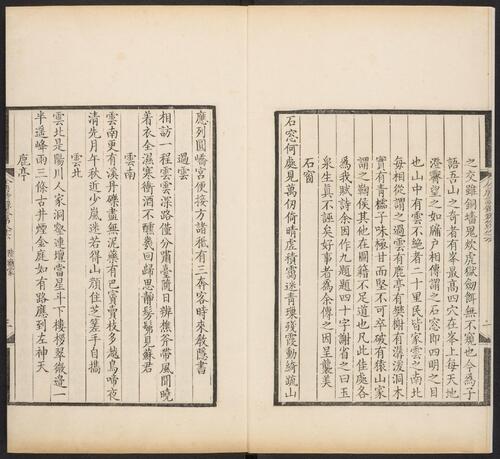 之交雖銅墻鬼炊虎獄劍餌無不窺也今為子
語吾山之奇者有峯最高四穴在峯上每天地
澄霽望之如牖户相傳謂之石窓即四明之目
也山中有雲不絕者二十里民皆家雲之南北
每相從謂之過雲有鹿亭有樊榭有潺湲洞木
實有青櫺子味極甘而堅不可卒破有猿山家
謂之鞠侯其他在圖籍不足道也凡此佳處各
為我賦詩余因作九題題四十字謝省之曰玉
泉生真不誣矣好事者為余傳之因呈襲美
石窗
石窓何處見萬仞倚晴虛積靄迷青璅殘霞動綺疏山
應列圓嶠宮便接方諸祗有三奔客時來教隱書
過雲
相訪一程雲雲深路僅分嘯臺隨日辨樵斧帶風聞曉
著衣全濕寒衝酒不醺幾回歸思靜髣髴見蘇君
雲南
雲南更有溪丹礫盡無泥藥有巴賨賣枝多越鳥啼夜
清先月午秋近少嵐迷若得山顔住芝䕢手自攜
雲北
雲北是陽川人家洞壑連壇當星斗下樓拶翠微邊一
半遥峰雨三條古井煙金庭如有路應到左神天
鹿亭